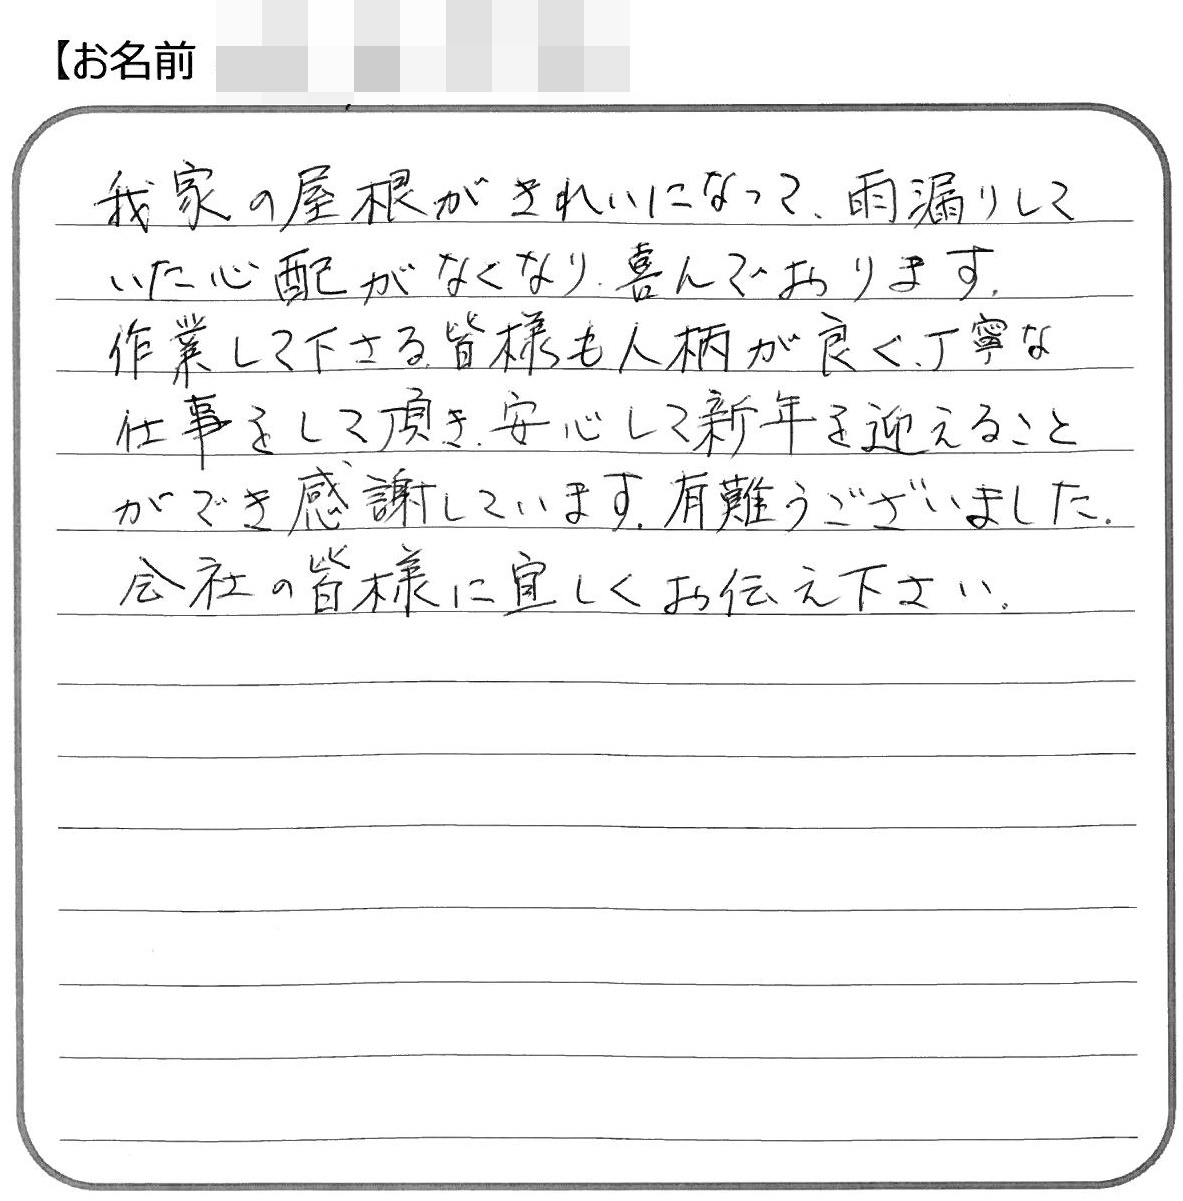 【お名前
我家の屋根がきれいになって、雨漏りして
いた心配がなくなり、喜んでおります。
作業して下さる皆様も人柄が良く、丁寧な
仕事をして頂き、安心して新年を迎えること
ができ感謝しています。有難うございました。
会社の皆様に宜しくお伝え下さい。